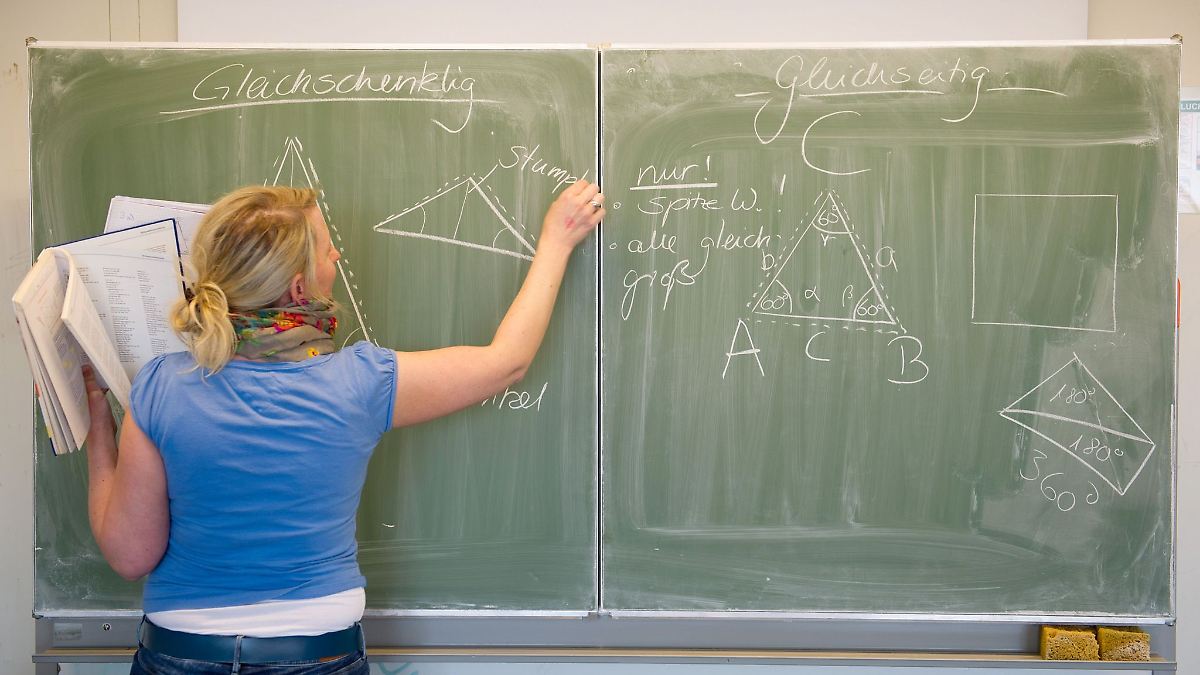 Gleichschenklig
Stumpf
Gleichseitig
C
nur!
spitze W. !
alle gleich
groß
60°
γ
b
a
60°
α
β
60°
A
C
B
180°
180°
360°
LUCH